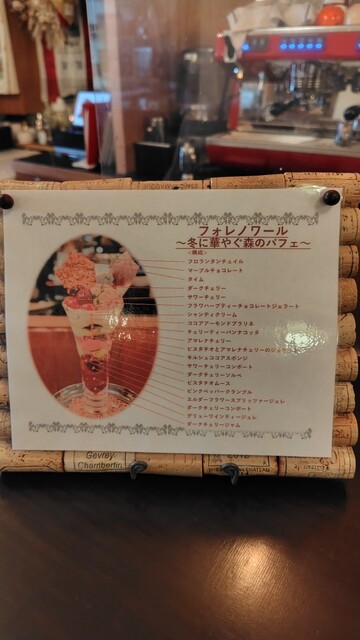 フォレノワール
～冬に華やぐ森のパフェ～
<構成>
フロランタンチュイル
マーブルチョコレート
タイム
ダークチェリー
サワーチェリー
フラワーハーブティーチョコレートジェラート
シャンティクリーム
ココアアーモンドプラリネ
チェリーティーパンナコッタ
アマレナチェリー
ピスタチオとアマレナチェリーの
キルシュココアスポンジ
サワーチェリーコンポート
ダークチェリーソルベ
ピスタチオムース
ピンクペッパークランブル
エルダーフラワースプリッツァージュレ
ダークチェリーコンポート
グリューワインティージュレ
ダークチェリージャム
Gevrey
Chambertin